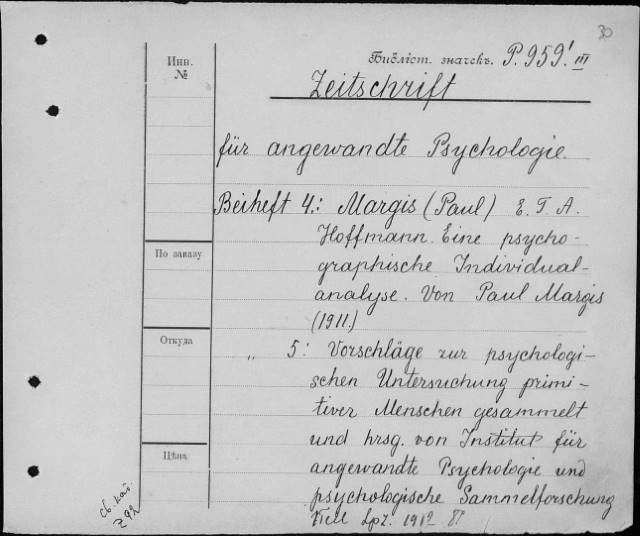 30
Инв.
№
Библіот. значекъ. P. 959! III
Zeitschrift
für angewandte Psychologie.
Beiheft 4.: Margis (Paul) E. T. A.
Hoffmann. Eine psycho-
graphische Individual-
analyse. Von Paul Margis
(1911.)
По заказу
Откуда
„ 5: Vorschläge zur psychologi-
schen Untersuchung primi-
tiver Menschen gesammelt
und hrsg. von Institut für
angewandte Psychologie und
psychologische Sammelforschung
Lpz. 1912
Цѣна
Z 92